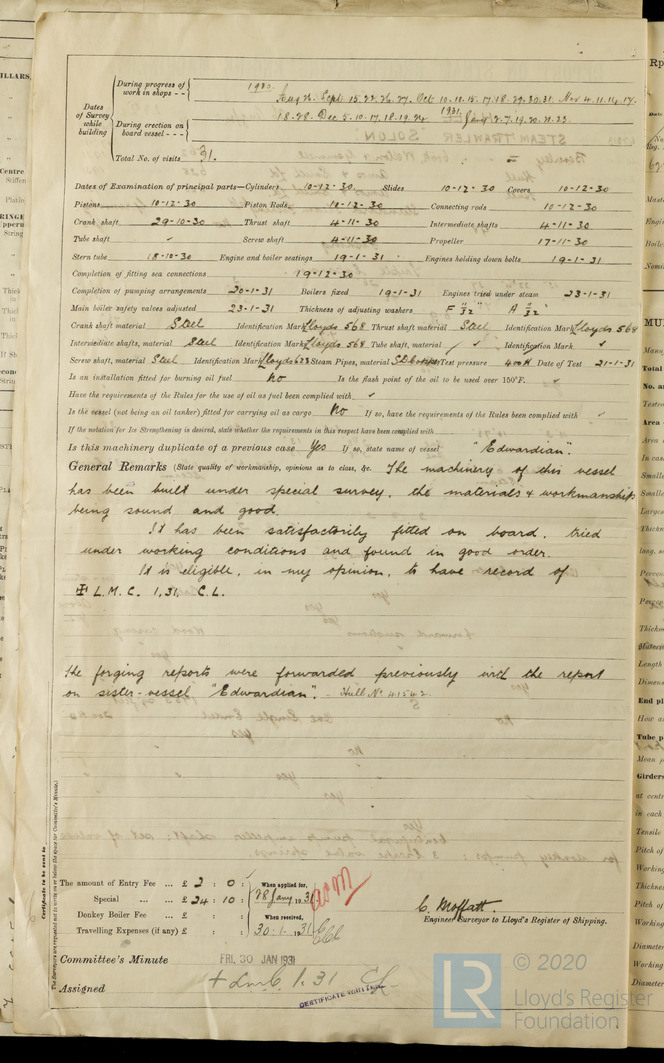 During progress of work in shops - -
1930.
Aug 26. Sept. 15. 22. 26. 27. Oct 10. 11. 15. 17. 18. 29. 30. 31. Nov 4. 11. 14. 17.
Dates of Survey while building
During erection on board vessel - - -
18. 28. Dec. 5. 10. 17. 18. 19. 24. 1931. Jany 2. 7. 19. 20. 21. 23.
Total No. of visits 31.
Dates of Examination of principal parts—Cylinders 10-12-30 Slides 10-12-30 Covers 10-12-30
Pistons 10-12-30 Piston Rods 10-12-30 Connecting rods 10-12-30
Crank shaft 29-10-30 Thrust shaft 4-11-30 Intermediate shafts 4-11-30
Tube shaft ✓ Screw shaft 4-11-30 Propeller 17-11-30
Stern tube 18-10-30 Engine and boiler seatings 19-1-31 Engines holding down bolts 19-1-31
Completion of fitting sea connections 19-12-30
Completion of pumping arrangements 20-1-31 Boilers fixed 19-1-31 Engines tried under steam 23-1-31
Main boiler safety valves adjusted 23-1-31 Thickness of adjusting washers F 11/32" A 11/32"
Crank shaft material Steel Identification Mark Lloyds 568 Thrust shaft material Steel Identification Mark Lloyds 568
Intermediate shafts, material Steel Identification Mark Lloyds 568 Tube shaft, material ✓ Identification Mark ✓
Screw shaft, material Steel Identification Mark Lloyds 623 Steam Pipes, material S.D. Copper Test pressure 400 Date of Test 21-1-31
Is an installation fitted for burning oil fuel No Is the flash point of the oil to be used over 150°F. ✓
Have the requirements of the Rules for the use of oil as fuel been complied with ✓
Is the vessel (not being an oil tanker) fitted for carrying oil as cargo No If so, have the requirements of the Rules been complied with ✓
If the notation for Ice Strengthening is desired, state whether the requirements in this respect have been complied with
Is this machinery duplicate of a previous case Yes If so, state name of vessel "Edwardian".
General Remarks (State quality of workmanship, opinions as to class, &c. The machinery of this vessel
has been built under special survey, the materials & workmanship
being sound and good.
It has been satisfactorily fitted on board, tried
under working conditions and found in good order.
It is eligible, in my opinion, to have record of
✠ L.M.C. 1,31. C.L.
The forging reports were forwarded previously with the report
on sister-vessel "Edwardian". - Hull No 41542.
Certificate to be sent to
The Surveyors are requested not to write on or below the space for Committee's Minute.
The amount of Entry Fee ... £ 2 : 0 : When applied for,
Special ... ... £ 24 : 10 : 28 Jany 1931
Donkey Boiler Fee ... £ : : When received,
Travelling Expenses (if any) £ : : 30.1.1931
C. Moffatt.
Engineer Surveyor to Lloyd's Register of Shipping.
Committee's Minute FRI. 30 JAN 1931
Assigned + LMC 1.31 CL
CERTIFICATE WRITTEN
© 2020
LR
Lloyd's Register
Foundation